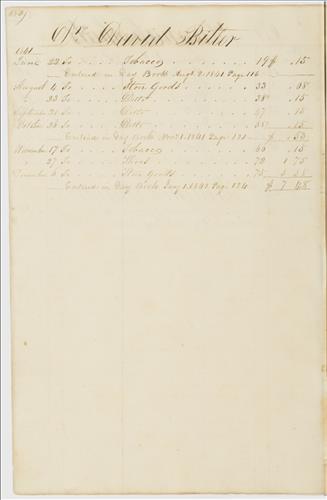 Dr David Bitter
1841
June 22 To . . . . Tobacco . . . . . . . 19 $ . 15
Entered in Day Book Augt 2. 1841 Page 116
August 4 To . . . . Store Goods . . . . . 33 .
" 23 To . . . . Ditto . . . . . . . 38 . 15
September 21 To . . . . Ditto . . . . . . . 47 . 15
October 25 To . . . . Ditto . . . . . . . 15
Entered in Day Book Nov 1. 1841 Page $
November 17 To . . . . Tobacco . . . . . . 60 . 15
27 To . . . . Shoes . . . . . . . 70 1 75
December 6 To . . . . Store Goods . . . . . 75
Entered in Day Book Jany 1. Page 124 $ 7 48